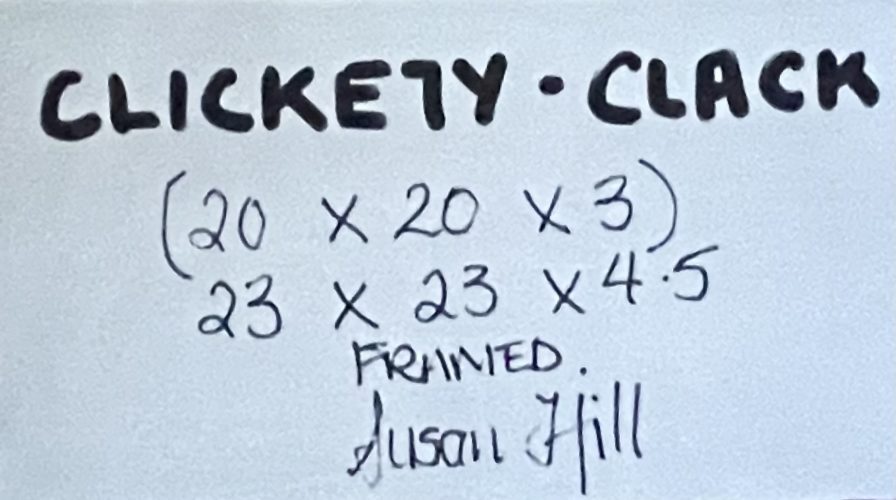 CLICKETY · CLACK
(20 x 20 x 3)
23 x 23 x 4.5
FRAMED.
Susan Hill